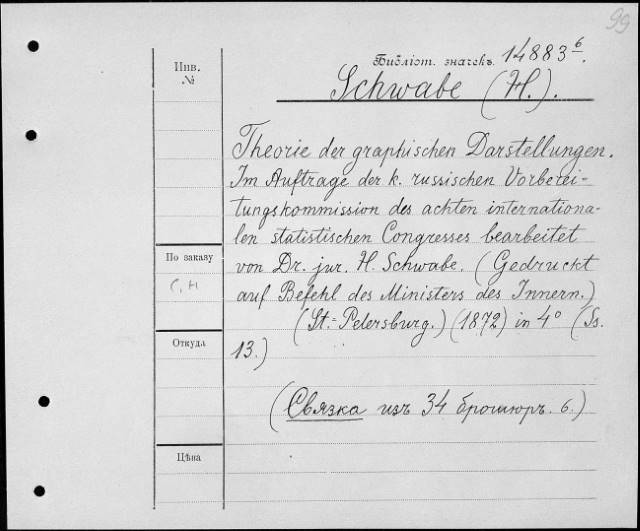 99
Инв.
№
Библіот. значекъ 14883 6.
Schwabe (H.).
Theorie der graphischen Darstellungen.
Im Auftrage der k. russischen Vorberei-
tungskommission des achten internationa-
len statistischen Congresses bearbeitet
По заказу
von Dr. jur. H. Schwabe. (Gedruckt
С, н
auf Befehl des Ministers des Innern.)
(St.-Petersburg.) (1872) in 4° (Ss.
Откуда
13.)
(Связка изъ 34 брошюръ. 6.)
Цѣна